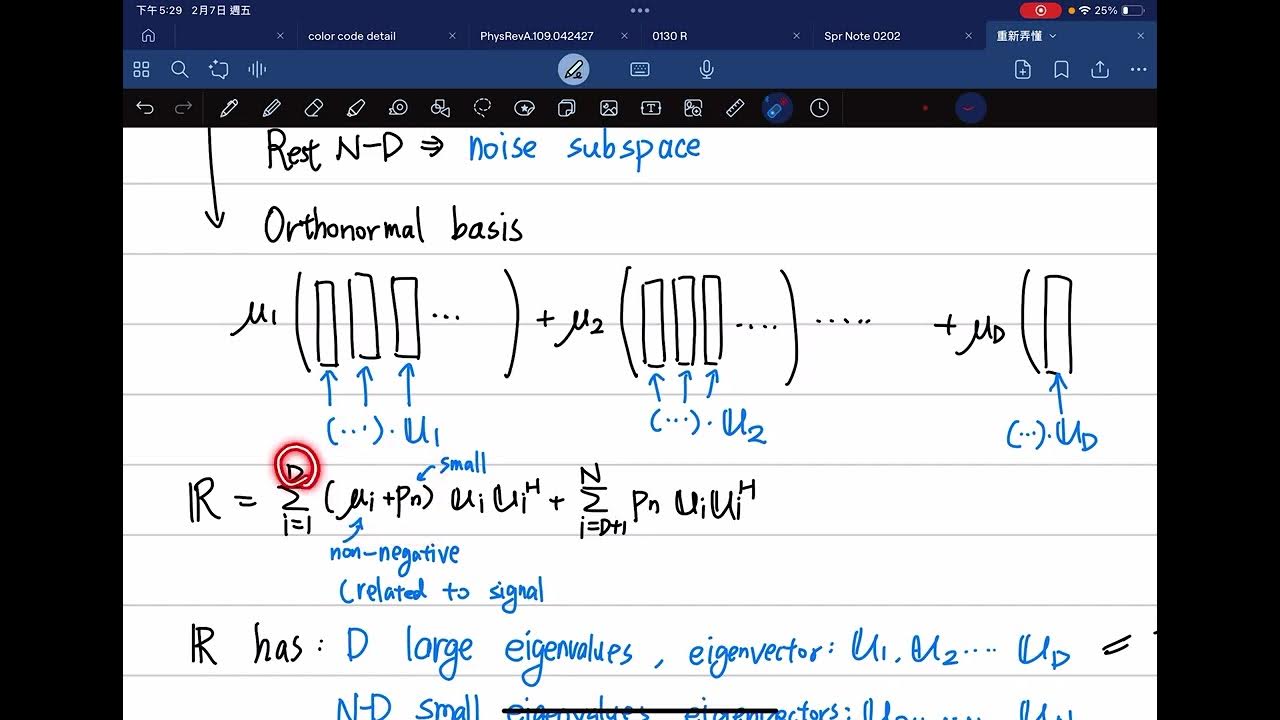 下午5:29 2月7日 週五
25%
color code detail
PhysRevA.109.042427
0130 R
Spr Note 0202
重新弄懂
Rest N-D ⇒ noise subspace
Orthonormal basis
μ1 ( ... ) + μ2 ( .... ) ..... + μD (
(...)·u1 (...)·u2 (...)·uD
small
R = Σ_{i=1}^{D} (μi + pn) ui ui^H + Σ_{i=D+1}^{N} pn ui ui^H
non-negative
(related to signal
R has: D large eigenvalues, eigenvector: u1, u2 .... uD =
N-D small eigenvalues eigenvectors: